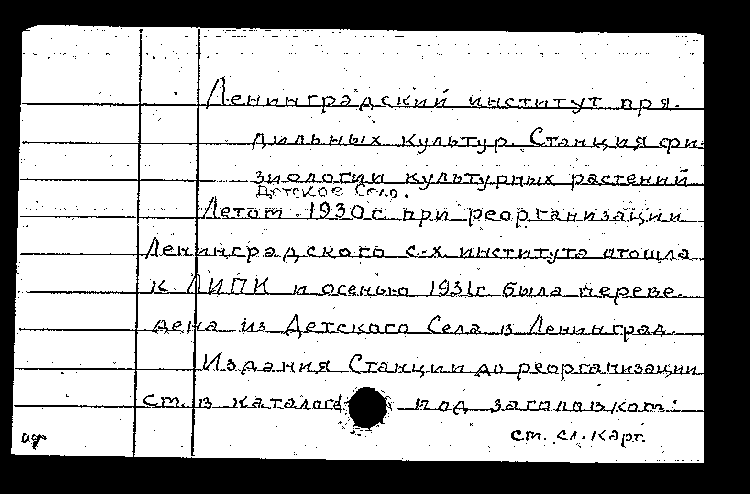 Ленинградский институт пря-
дильных культур. Станция фи-
зиологии культурных растений
Детское Село.
Летом 1930 г при реорганизации
Ленинградского с-х. института отошла
к ЛИПК и осенью 1931г. была переве-
дена из Детского Села в Ленинград.
Издания Станции до реорганизации
см. в каталоге под заголовком:
см. сл. карт.